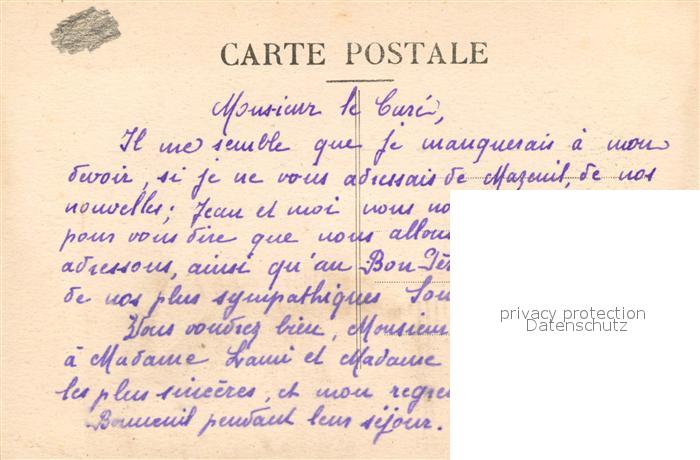 CARTE POSTALE
Monsieur le Curé,
Il me semble que je manquerais à mon
devoir, si je ne vous adressais de Mazeuil, de nos
nouvelles; Jean et moi nous
pour vous dire que nous allons
adressons, ainsi qu'au Bon
de nos plus sympathiques
Vous voudrez bien, Monsieur
à Madame Lami et Madame
les plus sincères, et mon
Bonneuil pendant leur séjour.
privacy protection
Datenschutz